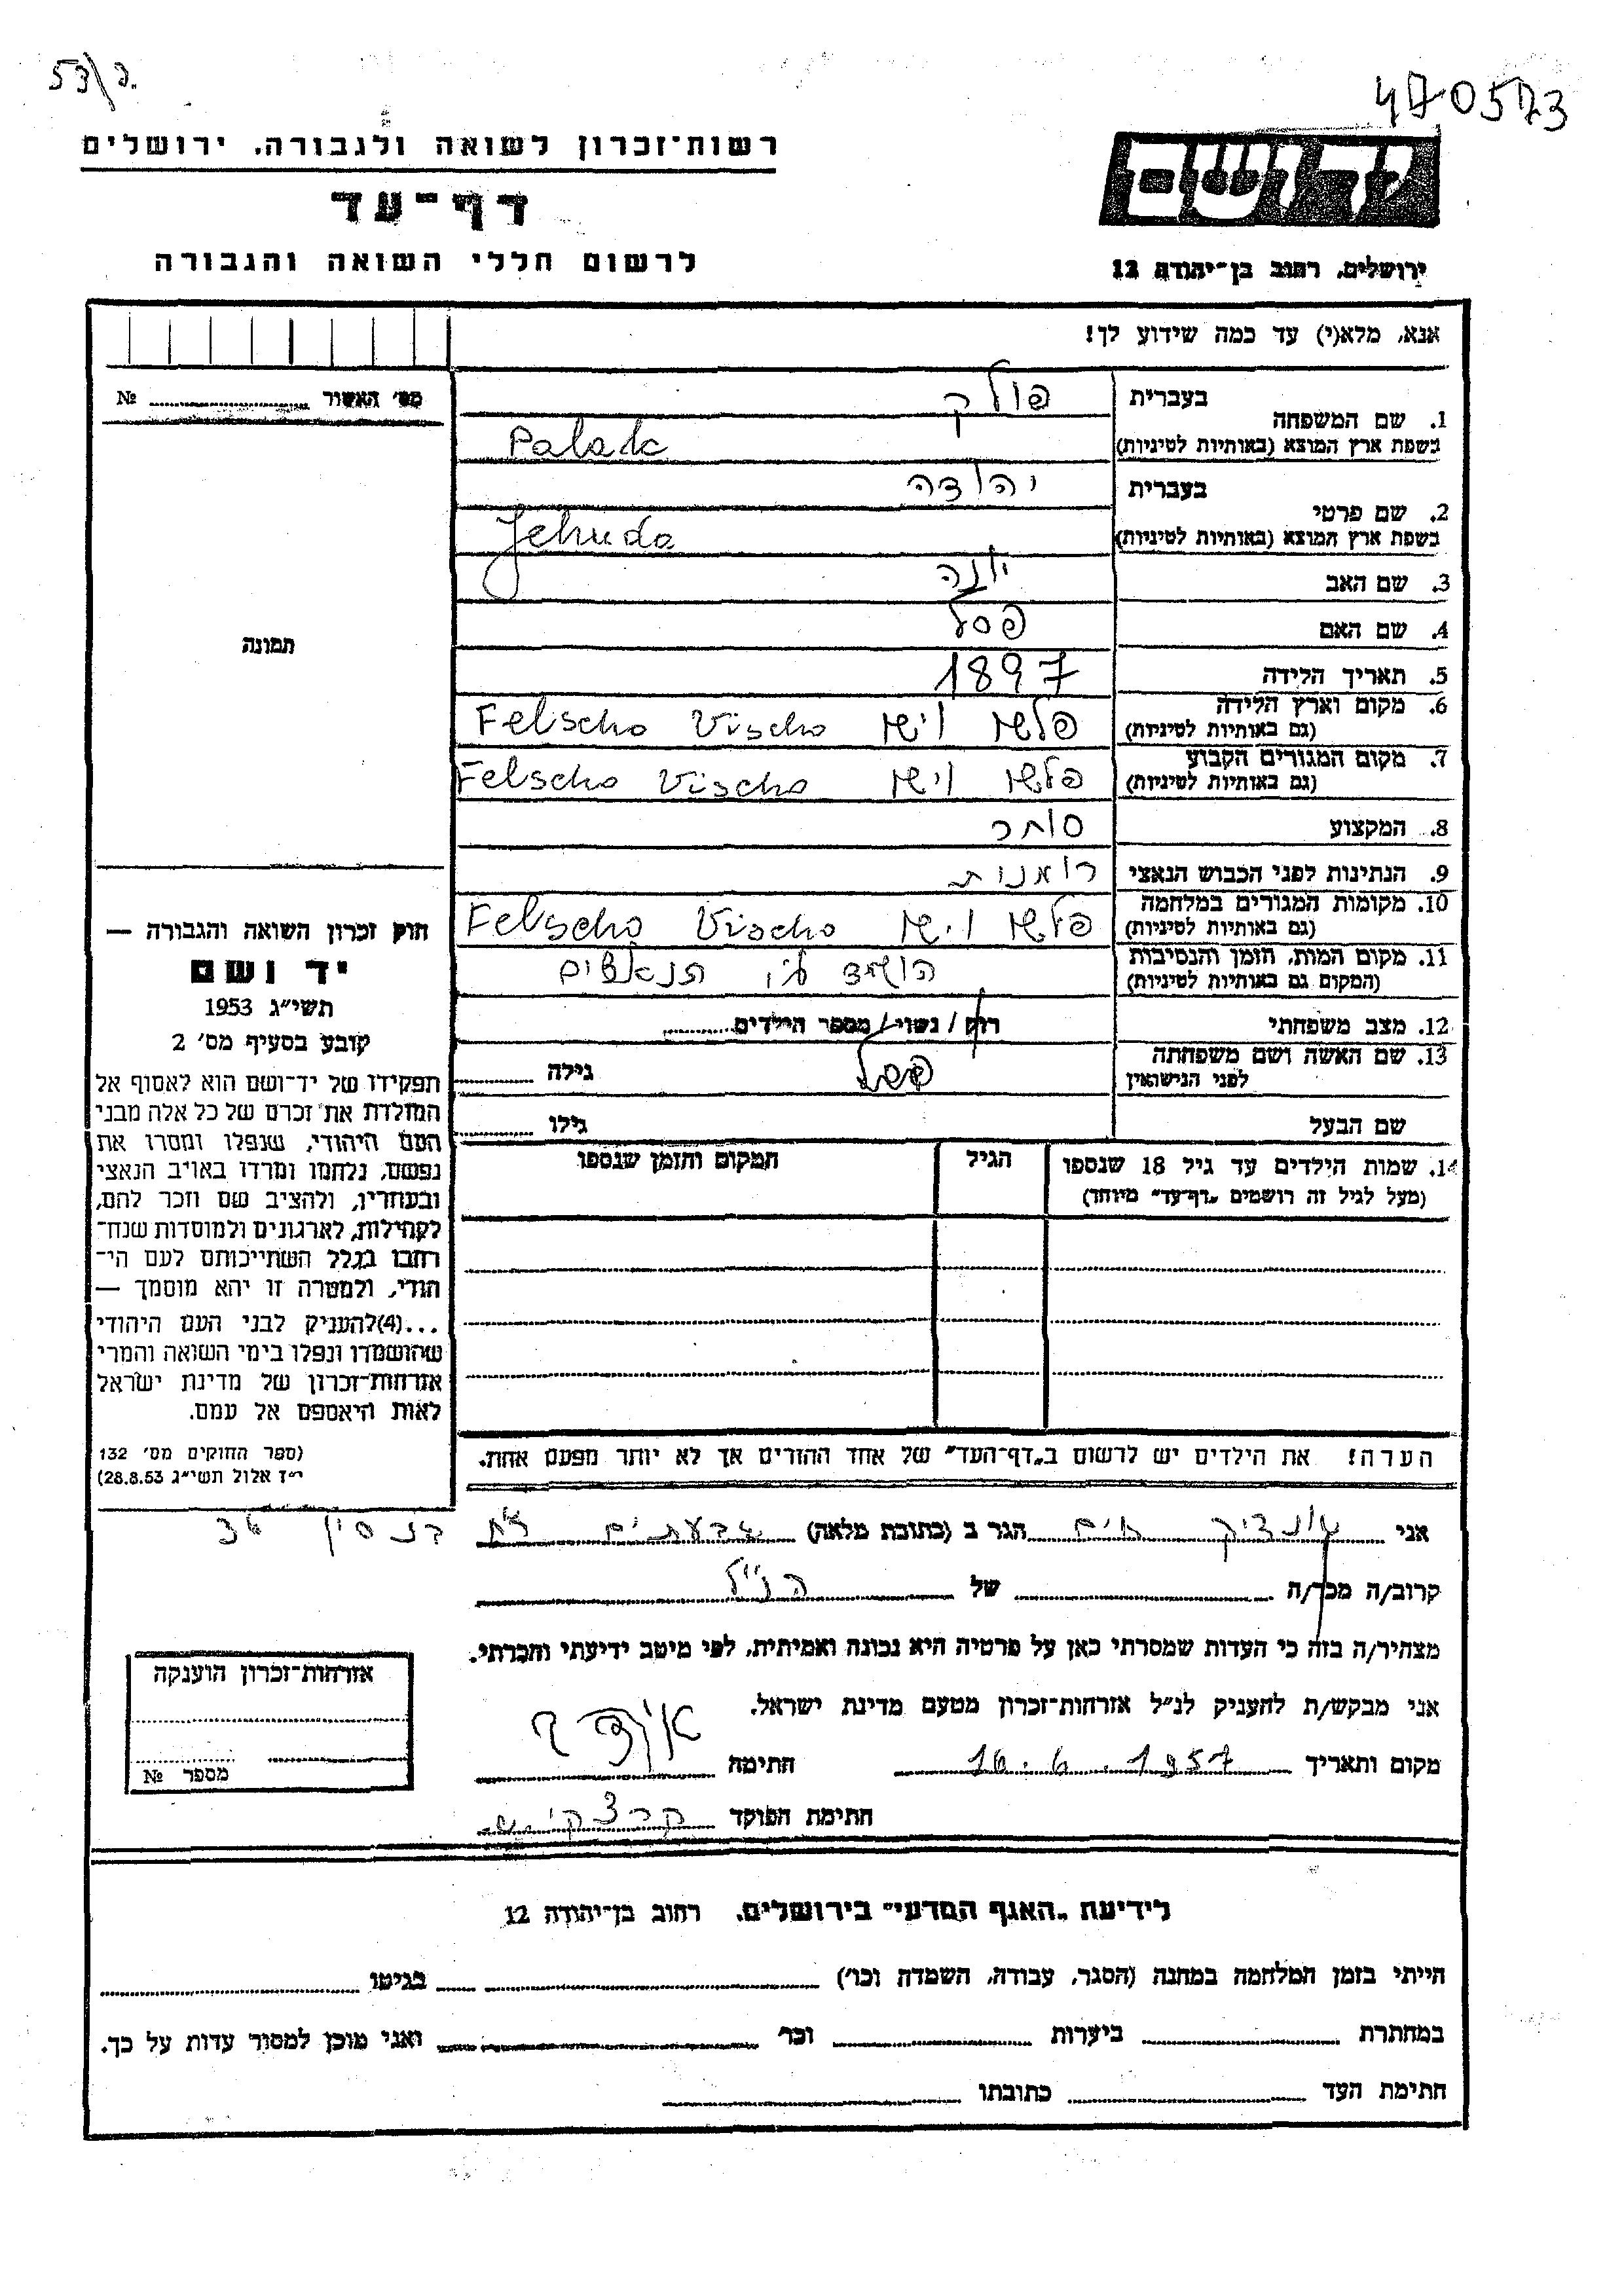 53/ב.
470573
רשות־זכרון לשואה ולגבורה. ירושלים
דף־עד
לרשום חללי השואה והגבורה
יד ושם
ירושלים, רחוב בן־יהודה 12
אנא, מלא(י) עד כמה שידוע לך!
מס׳ האשור № 
1. שם המשפחה
בעברית
פולק
בשפת ארץ המוצא (באותיות לטיניות)
Polak
2. שם פרטי
בעברית
יהודה
בשפת ארץ המוצא (באותיות לטיניות)
Jehuda
3. שם האב יונה
4. שם האם פסל
5. תאריך הלידה 1897
6. מקום וארץ הלידה
(גם באותיות לטיניות)
פלשו וישו Felscho Vischo
7. מקום המגורים הקבוע
(גם באותיות לטיניות)
פלשו וישו Felscho Vischo
8. המקצוע סוחר
9. הנתינות לפני הכבוש הנאצי רומנית
10. מקומות המגורים במלחמה
(גם באותיות לטיניות)
פלשו וישו Felscho Vischo
11. מקום המות, הזמן והנסיבות
(המקום גם באותיות לטיניות)
הושמד ע״י הנאצים
12. מצב משפחתי רווק / נשוי / מספר הילדים
13. שם האשה ושם משפחתה
לפני הנישואין
גילה
שם הבעל גילו
14. שמות הילדים עד גיל 18 שנספו הגיל המקום והזמן שנספו
(מעל לגיל זה רושמים „דף־עד״ מיוחד)
הערה! את הילדים יש לרשום ב„דף־העד״ של אחד ההורים אך לא יותר מפעם אחת.
תמונה
חוק זכרון השואה והגבורה —
יד ושם
תשי״ג 1953
קובע בסעיף מס׳ 2
תפקידו של יד־ושם הוא לאסוף אל
המולדת את זכרם של כל אלה מבני
העם היהודי, שנפלו ומסרו את
נפשם, נלחמו ומרדו באויב הנאצי
ובעוזריו, ולהציב שם וזכר להם,
לקהילות, לארגונים ולמוסדות שנח־
רחבו בגלל השתייכותם לעם הי־
הודי, ולמטרה זו יהא מוסמך —
...(4)להעניק לבני העם היהודי
שהושמדו ונפלו בימי השואה והמרי
אזרחות־זכרון של מדינת ישראל
לאות היאספם אל עמם.
(ספר החוקים מס׳ 132
י״ז אלול תשי״ג 28.8.53)
אני חיים הגר ב (כתובת מלאה) גבעתיים
קרוב/ה מכר/ה של הנ״ל
מצהיר/ה בזה כי העדות שמסרתי כאן על פרטיה היא נכונה ואמיתית, לפי מיטב ידיעתי והכרתי.
אני מבקש/ת להעניק לנ״ל אזרחות־זכרון מטעם מדינת ישראל.
מקום ותאריך 16.6.1957 חתימה
חתימת הפוקד
אזרחות־זכרון הוענקה
מספר №
לידיעת „האגף המדעי״ בירושלים. רחוב בן־יהודה 12
הייתי בזמן המלחמה במחנה (הסגר, עבודה, השמדה וכו׳) בגיטו
במחתרת ביערות וכו׳ ואני מוכן למסור עדות על כך.
חתימת העד כתובתו